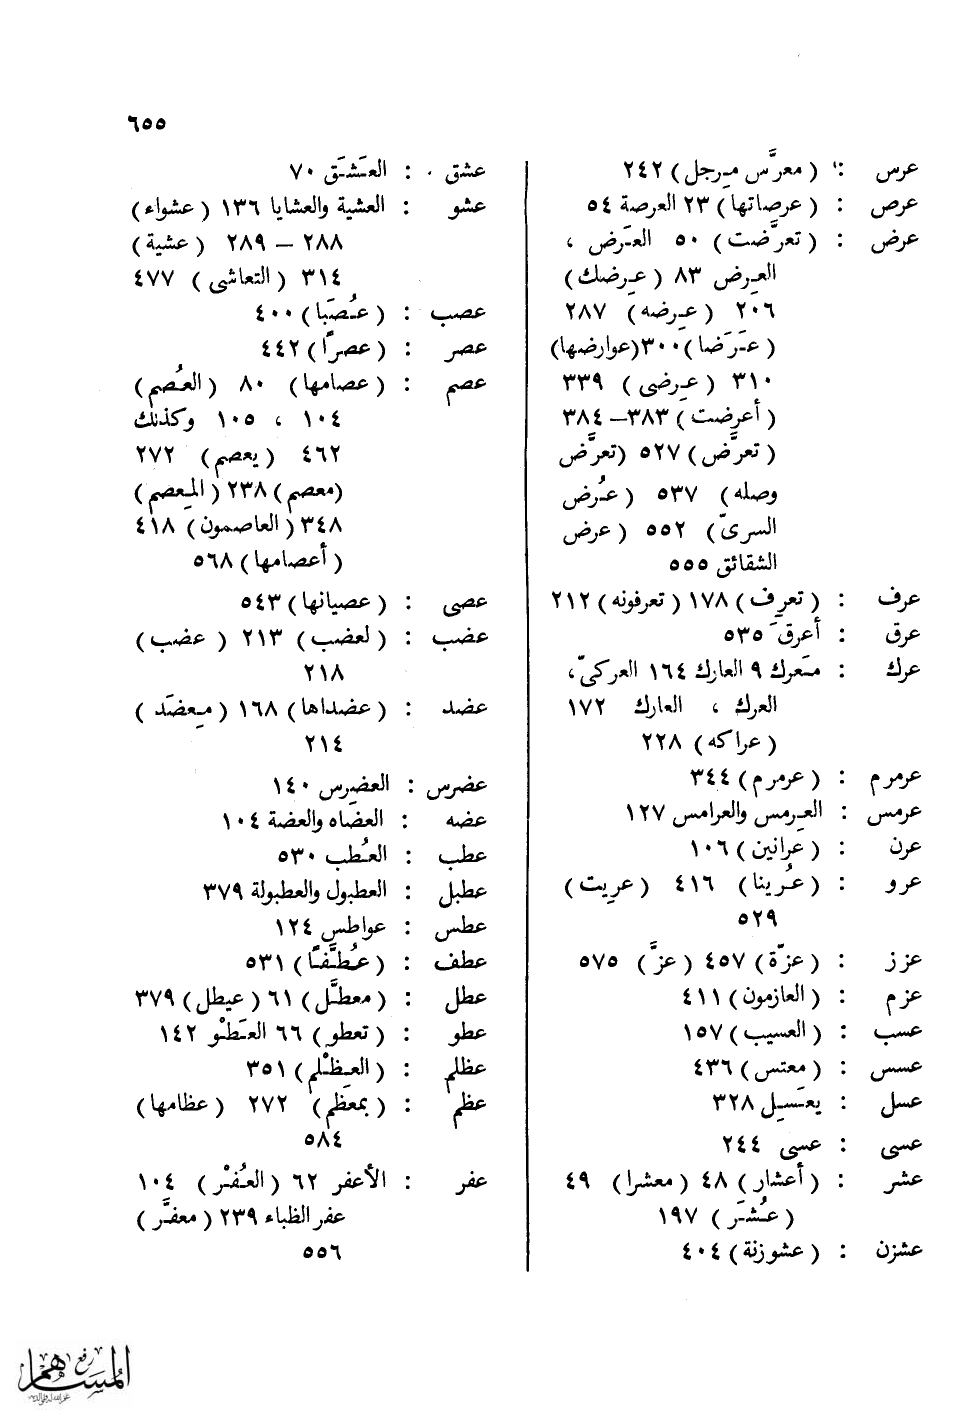 ٦٥٥
عرس : ( معرَّس مِرجل ) ٢٤٢
عرص : ( عرصاتها ) ٢٣ العرصة ٥٤
عرض : ( تعرَّضت ) ٥٠ العَرض ،
العِرض ٨٣ ( عِرضك )
٢٠٦ ( عِرضه ) ٢٨٧
( عَرَضا ) ٣٠٠ ( عوارضها )
٣١٠ ( عِرضى ) ٣٣٩
( أعرضت ) ٣٨٣ – ٣٨٤
( تعرَّض ) ٥٢٧ ( تعرَّض
وصله ) ٥٣٧ ( عُرض
السرىّ ) ٥٥٢ ( عرض
الشقائق ٥٥٥
عرف : ( تعرِف ) ١٧٨ ( تعرفونه ) ٢١٢
عرق : أعرقَ ٥٣٥
عرك : مَعرك ٩ العارك ١٦٤ العركىّ ،
العرك ، العارك ١٧٢
( عراكه ) ٢٢٨
عرمرم : ( عرمرم ) ٣٤٤
عرمس : العِرمس والعرامس ١٢٧
عرن : ( عرانين ) ١٠٦
عرو : ( عُرينا ) ٤١٦ ( عريت )
٥٢٩
عزز : ( عزّة ) ٤٥٧ ( عزَّ ) ٥٧٥
عزم : ( العازمون ) ٤١١
عسب : ( العسيب ) ١٥٧
عسس : ( معتس ) ٤٣٦
عسل : يعسِل ٣٢٨
عسى : عسى ٢٤٤
عشر : ( أعشار ) ٤٨ ( معشرا ) ٤٩
( عُشَر ) ١٩٧
عشزن : ( عشوزنة ) ٤٠٤
عشق : العَشَق ٧٠
عشو : العشية والعشايا ١٣٦ ( عشواء )
٢٨٨ – ٢٨٩ ( عشية )
٣١٤ ( التعاشى ) ٤٧٧
عصب : ( عُصَبا ) ٤٠٠
عصر : ( عصرًا ) ٤٤٢
عصم : ( عصامها ) ٨٠ ( العُصم )
١٠٤ ، ١٠٥ وكذلك
٤٦٢ ( يعصم ) ٢٧٢
( معصم ) ٢٣٨ ( المِعصم )
٣٤٨ ( العاصمون ) ٤١٨
( أعصامها ) ٥٦٨
عصى : ( عصيانها ) ٥٤٣
عضب : ( لعضب ) ٢١٣ ( عضب )
٢١٨
عضد : ( عضداها ) ١٦٨ ( مِعضَد )
٢١٤
عضرس : العضرِس ١٤٠
عضه : العضاه والعضة ١٠٤
عطب : العُطب ٥٣٠
عطبل : العطبول والعطبولة ٣٧٩
عطس : عواطس ١٢٤
عطف : ( عُطَّفًا ) ٥٣١
عطل : ( معطَّل ) ٦١ ( عيطل ) ٣٧٩
عطو : ( تعطو ) ٦٦ العَطْو ١٤٢
عظلم : ( العِظْلم ) ٣٥١
عظم : ( بمعظَم ) ٢٧٢ ( عظامها )
٥٨٤
عفر : الأعفر ٦٢ ( العُفْر ) ١٠٤
عفر الظباء ٢٣٩ ( معفَّر )
٥٥٦
رفع
المساهم